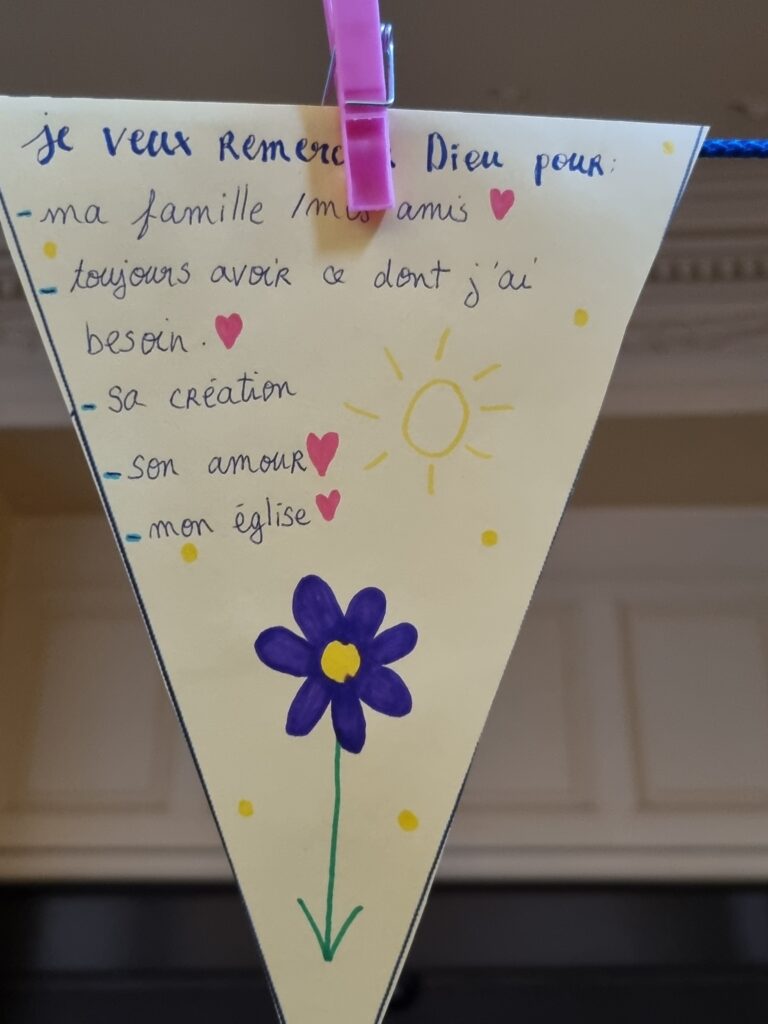 je veux REMERC Dieu pouR:
- ma famille / amis
- toujours avoiR ce dont j'ai
besoin.
- sa cRéation
- son amouR
- mon église